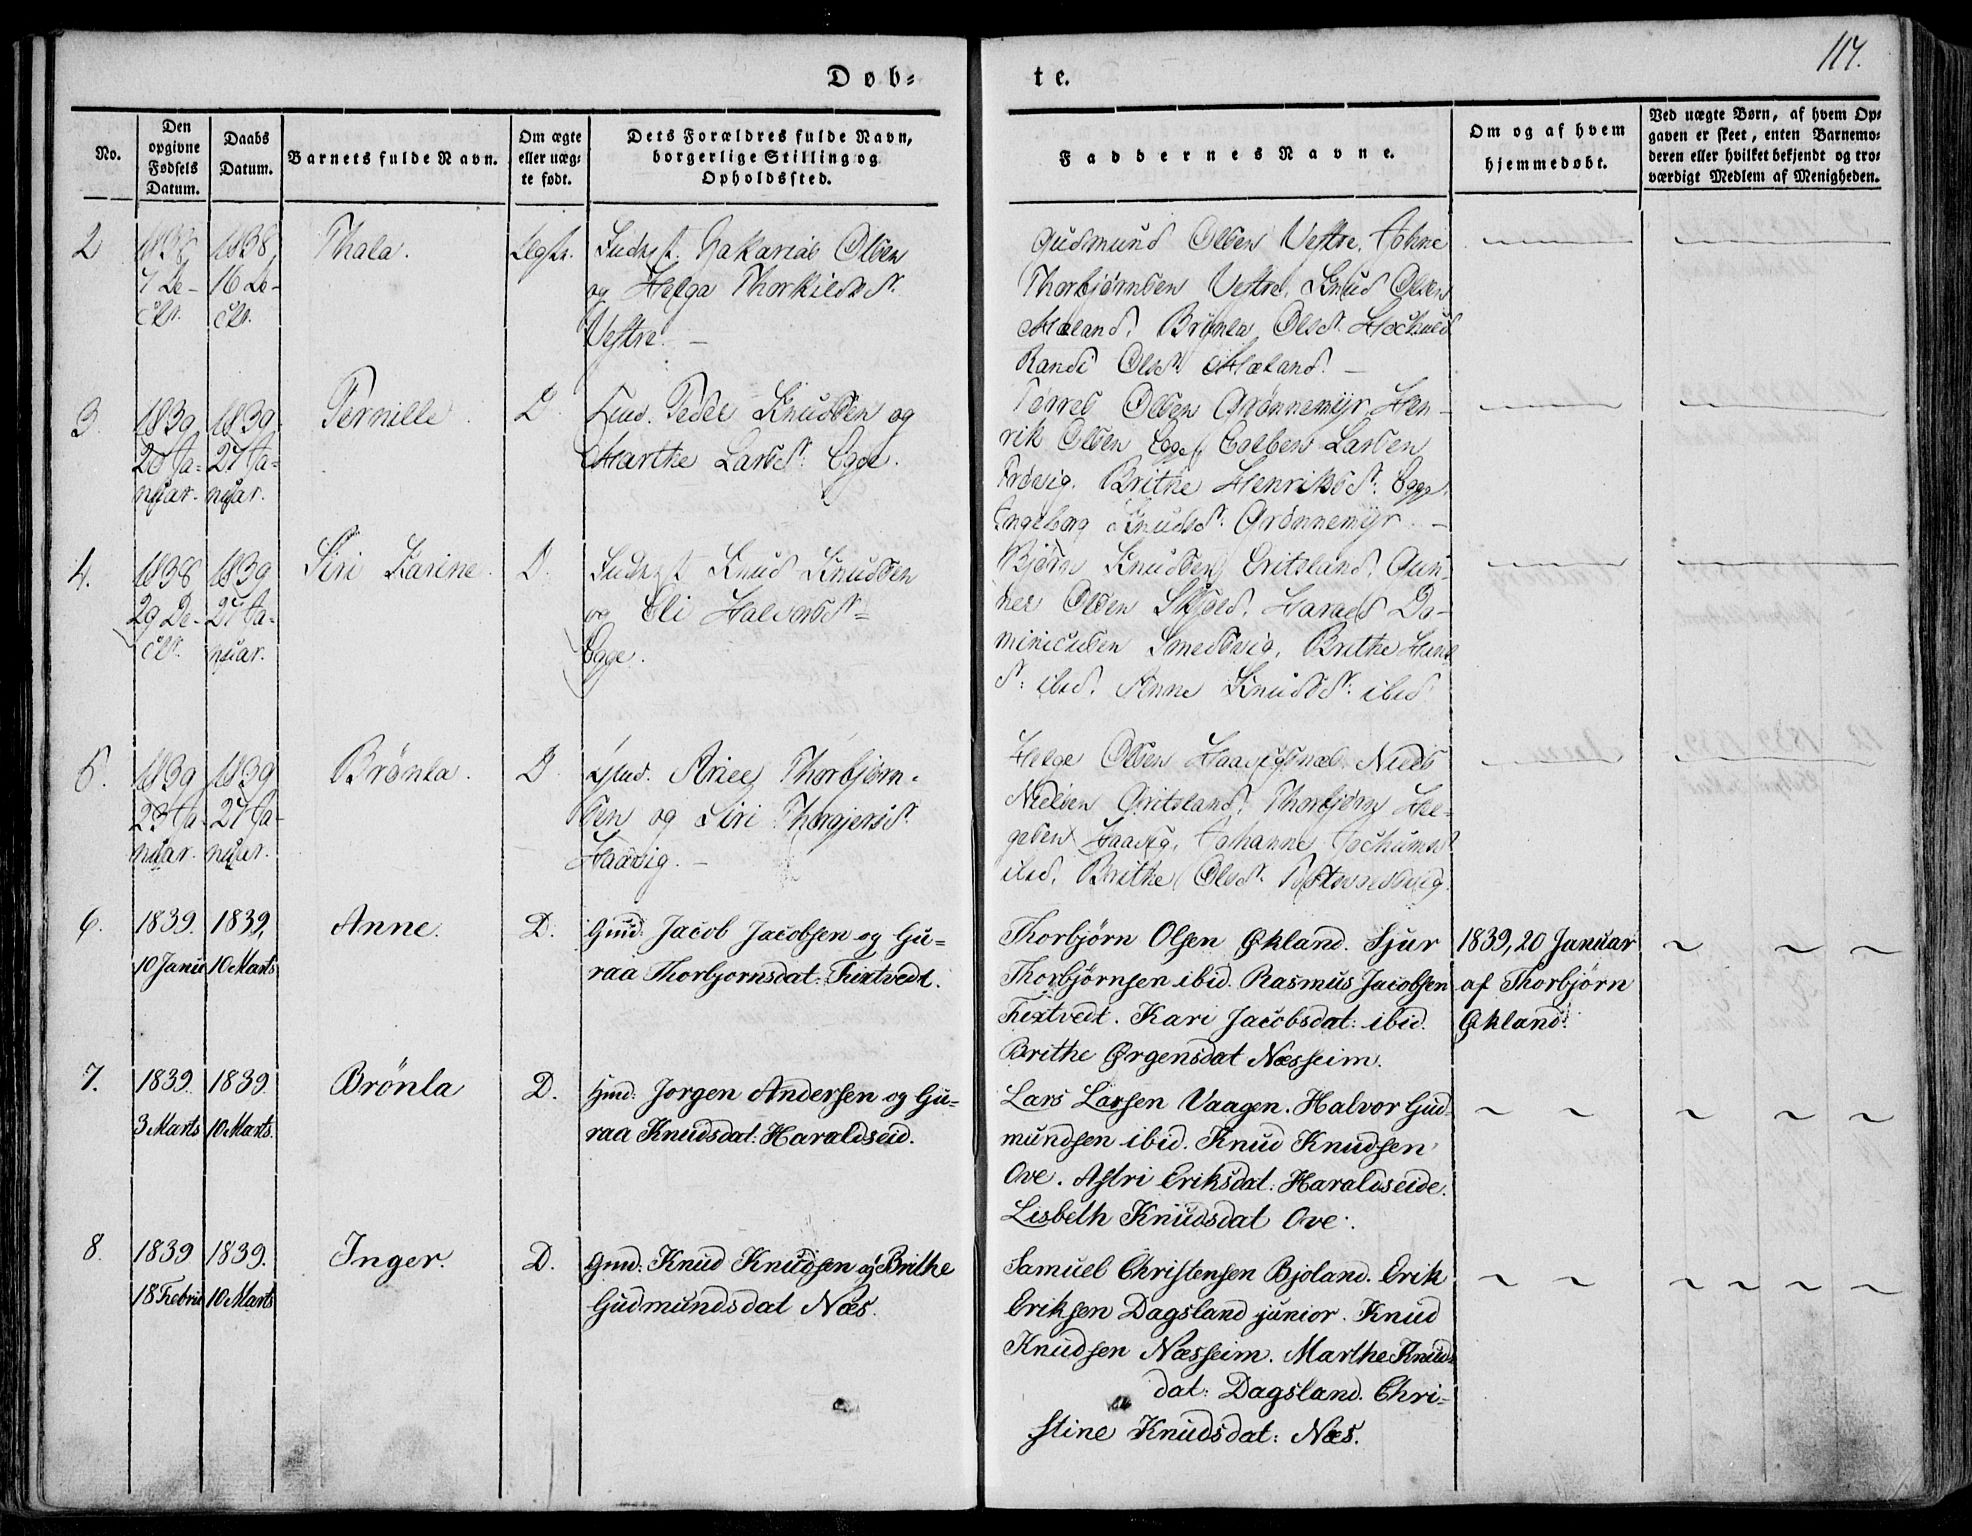 117.
Døb=
te.
No.
Den
opgivne
Fødsels
Datum.
Daabs
Datum.
Barnets fulde Navn.
Om ægte
eller uæg=
te født.
Dets Forældres fulde Navn,
borgerlige Stilling og
Opholdssted.
Faddernes Navne.
Om og af hvem
hjemmedøbt.
Ved uægte Børn, af hvem Op=
gaven er skeet, enten Barnemo=
deren eller hvilket bekjendt og tro=
værdigt Medlem af Menigheden.
2
1838
7 De-
cbr.
1838
16 De-
cbr.
Thala.
Indrst. Zakarias Olsen
og Helga Thorkildsd.
Vestre. —
Gudmund Olsen Vestre, Johne
Thorbjørnsen Vestre, Knud Olsen
Mæland, Brønla Olsd.
Randi Olsd. Mæland. —
3.
1839
20 Ja-
nuar.
1839
27 Ja-
nuar.
Pernille.
D.
Peder Knudsen og
Marthe Larsd. Ege.
Olsen Grønnemyr, Hen-
rik Olsen Ege, Larsen
Brithe Henriksd. Egge,
Ingeborg Knudsd. Grønnemyr. —
4.
1838
29 De-
cbr.
1839
27 Ja-
nuar.
Siri Karine.
D.
Indrst. Knud Knudsen
og Eli Halvorsd.
Egge.
Bjørn Knudsen Gritsland, Gun-
ner Olsen Harald Do-
minicusen Smedsvig, Brithe Hans
d: ibid, Anne Knudsd: ibid
5.
1839
23 Ja-
nuar.
1839
27 Ja-
nuar.
Brönla.
D.
Gmd. Thorbjørn-
sen og Siri Thorgjersd.
Haavig. —
Helge Olsen Niels
Nielsen Gritsland, Thorbjørn Hel-
gesen Haavig, Johanne Jochumsd
ibid, Brithe Olsd.
6.
1839.
10 Janu
1839,
10 Marts
Anne.
D.
Gmd: Jacob Jacobsen og Gu=
raa Thorbjornsdat: Fixtvedt.
Thorbjörn Olsen Økland. Sjur
Thorbjørnsen ibid. Rasmus Jacobsen
Fixtvedt. Kari Jacobsdat: ibid.
Brithe Ørgensdat Næsheim.
1839, 20 Januar
af Thorbjörn
Økland.
7.
1839.
3 Marts
1839
10 Marts.
Brönla
D.
Gmd: Jorgen Andersen og Gu=
raa Knudsdat: Haraldseid.
Lars Larsen Vaagen. Halvor Gud-
mundsen ibid. Knud Knudsen
Ove. Astri Eriksdat: Haraldseide.
Lisbeth Knudsdat Ove.
8.
1839
18 Febru
1839.
10 Marts
Inger.
D.
Gmd: Knud Knudsen og Brithe
Gudmundsdat Næs.
Samuel Christensen Bjoland. Erik
Eriksen Dagsland junior. Knud
Knudsen Næsheim. Marthe Knuds
dat: Dagsland. Chri=
stine Knudsdat: Næs.